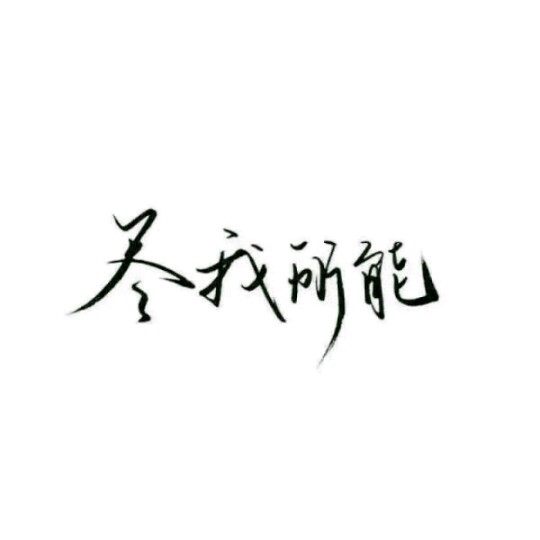 尽我所能